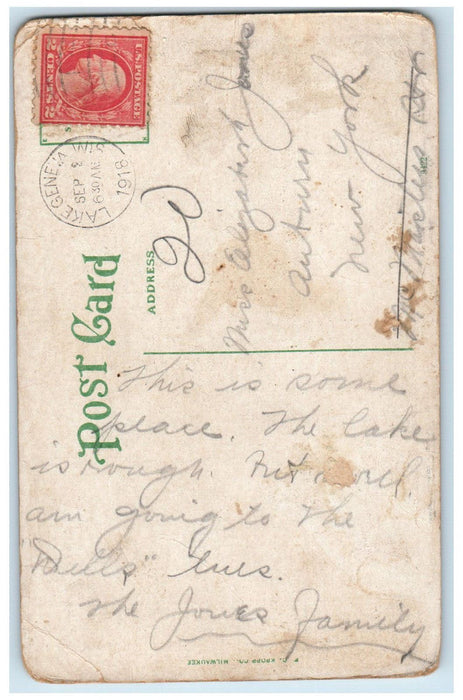 U.S. POSTAGE
LAKE GENEVA WIS
SEP
630 AM
1918
Post Card
ADDRESS
20
Miss Elizabeth Jones
Auburn
New York
This is some
place. The lake
is rough.
am going to the
"Dells" tues.
The Jones Family
E. C. KROPP CO. MILWAUKEE